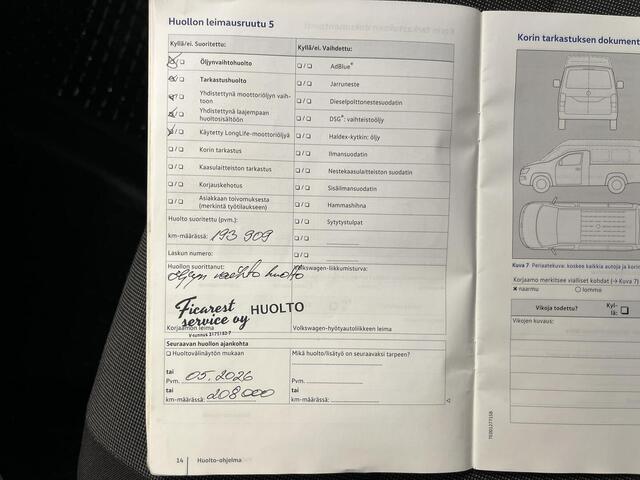 Huollon leimausruutu 5
Kyllä/ei. Suoritettu:
Kyllä/ei. Vaihdettu:
Öljynvaihtohuolto
AdBlue®
Tarkastushuolto
Jarruneste
Yhdistettynä moottoriöljyn vaih-
toon
Dieselpolttonestesuodatin
Yhdistettynä laajempaan
huoltosisältöön
DSG®: vaihteistoöljy
Käytetty LongLife-moottoriöljyä
Haldex-kytkin: öljy
Korin tarkastus
Ilmansuodatin
Kaasulaitteiston tarkastus
Nestekaasulaitteiston suodatin
Korjauskehotus
Sisäilmansuodatin
Asiakkaan toivomuksesta
(merkintä työtilaukseen)
Hammashihna
Huolto suoritettu (pvm.):
Sytytystulpat
km-määrässä: 193 909
Laskun numero:
Huollon suorittanut:
Volkswagen-liikkumisturva:
öljyn vaihto huolto
Ficarest
service oy
HUOLTO
Y-tunnus 3175182-7
Korjaamon leima
Volkswagen-hyötyautoliikkeen leima
Seuraavan huollon ajankohta
Huoltovälinäytön mukaan
Mikä huolto/lisätyö on seuraavaksi tarpeen?
tai
Pvm. 05.2026
Pvm.
tai
km-määrässä: 208000
tai
km-määrässä:
14 Huolto-ohjelma
Korin tarkastuksen dokument
Kuva 7 Periaatekuva: koskee kaikkia autoja ja korin
Korjaamo merkitsee vialliset kohdat (→ Kuva 7)
naarmu
lommo
Vikoja todettu?
Kyl-
lä:
Vikojen kuvaus: